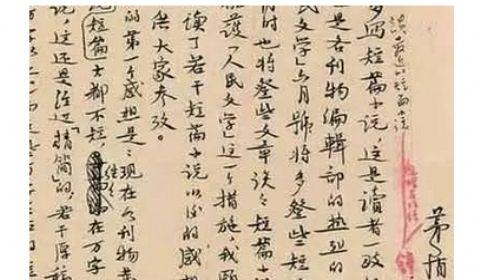 茅盾
谈最近的短篇小说
多写短篇小说，这是读者一致
是各刊物编辑部的热烈的
民文学」六月号将多登些短
时也将登些文章谈谈短篇小
拥护「人民文学」这个措施，我愿
读了若干短篇小说以后的感想
供大家参考。
的第一个感想是：现在各刊物发
短篇」大都不短，往往在万字
说，这还是经过「精简」的，若干原稿